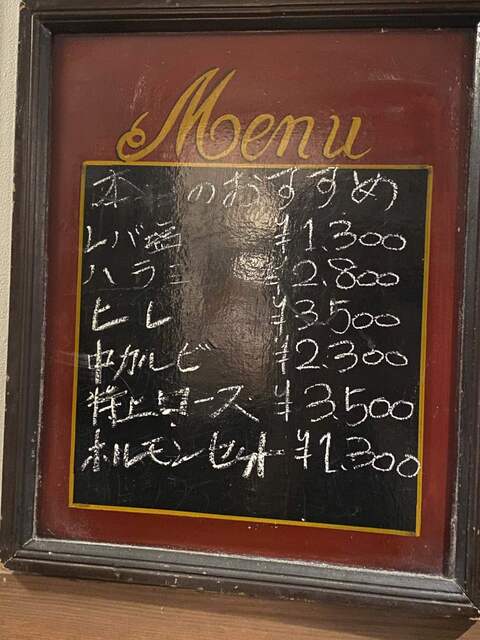 Menu
本日のおすすめ
レバ塩 ¥1.300
ハラミ ¥2.800
ヒレ ¥3.500
中カルビ ¥2.300
特上ロース ¥3.500
ホルモンセット ¥1.300